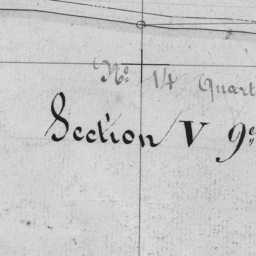 No. 14 Quart
Section V 9e